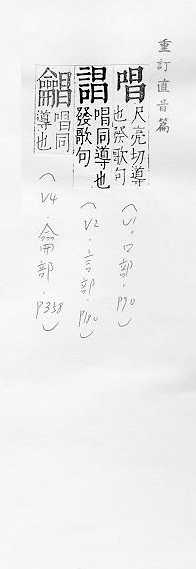 重訂直音篇
唱 尺亮切導
也發歌句
誯 唱同導也
發歌句
龠昌 唱同
導也
(V1.口部.P90)
(V2.言部.P180)
(V4.龠部.P358)